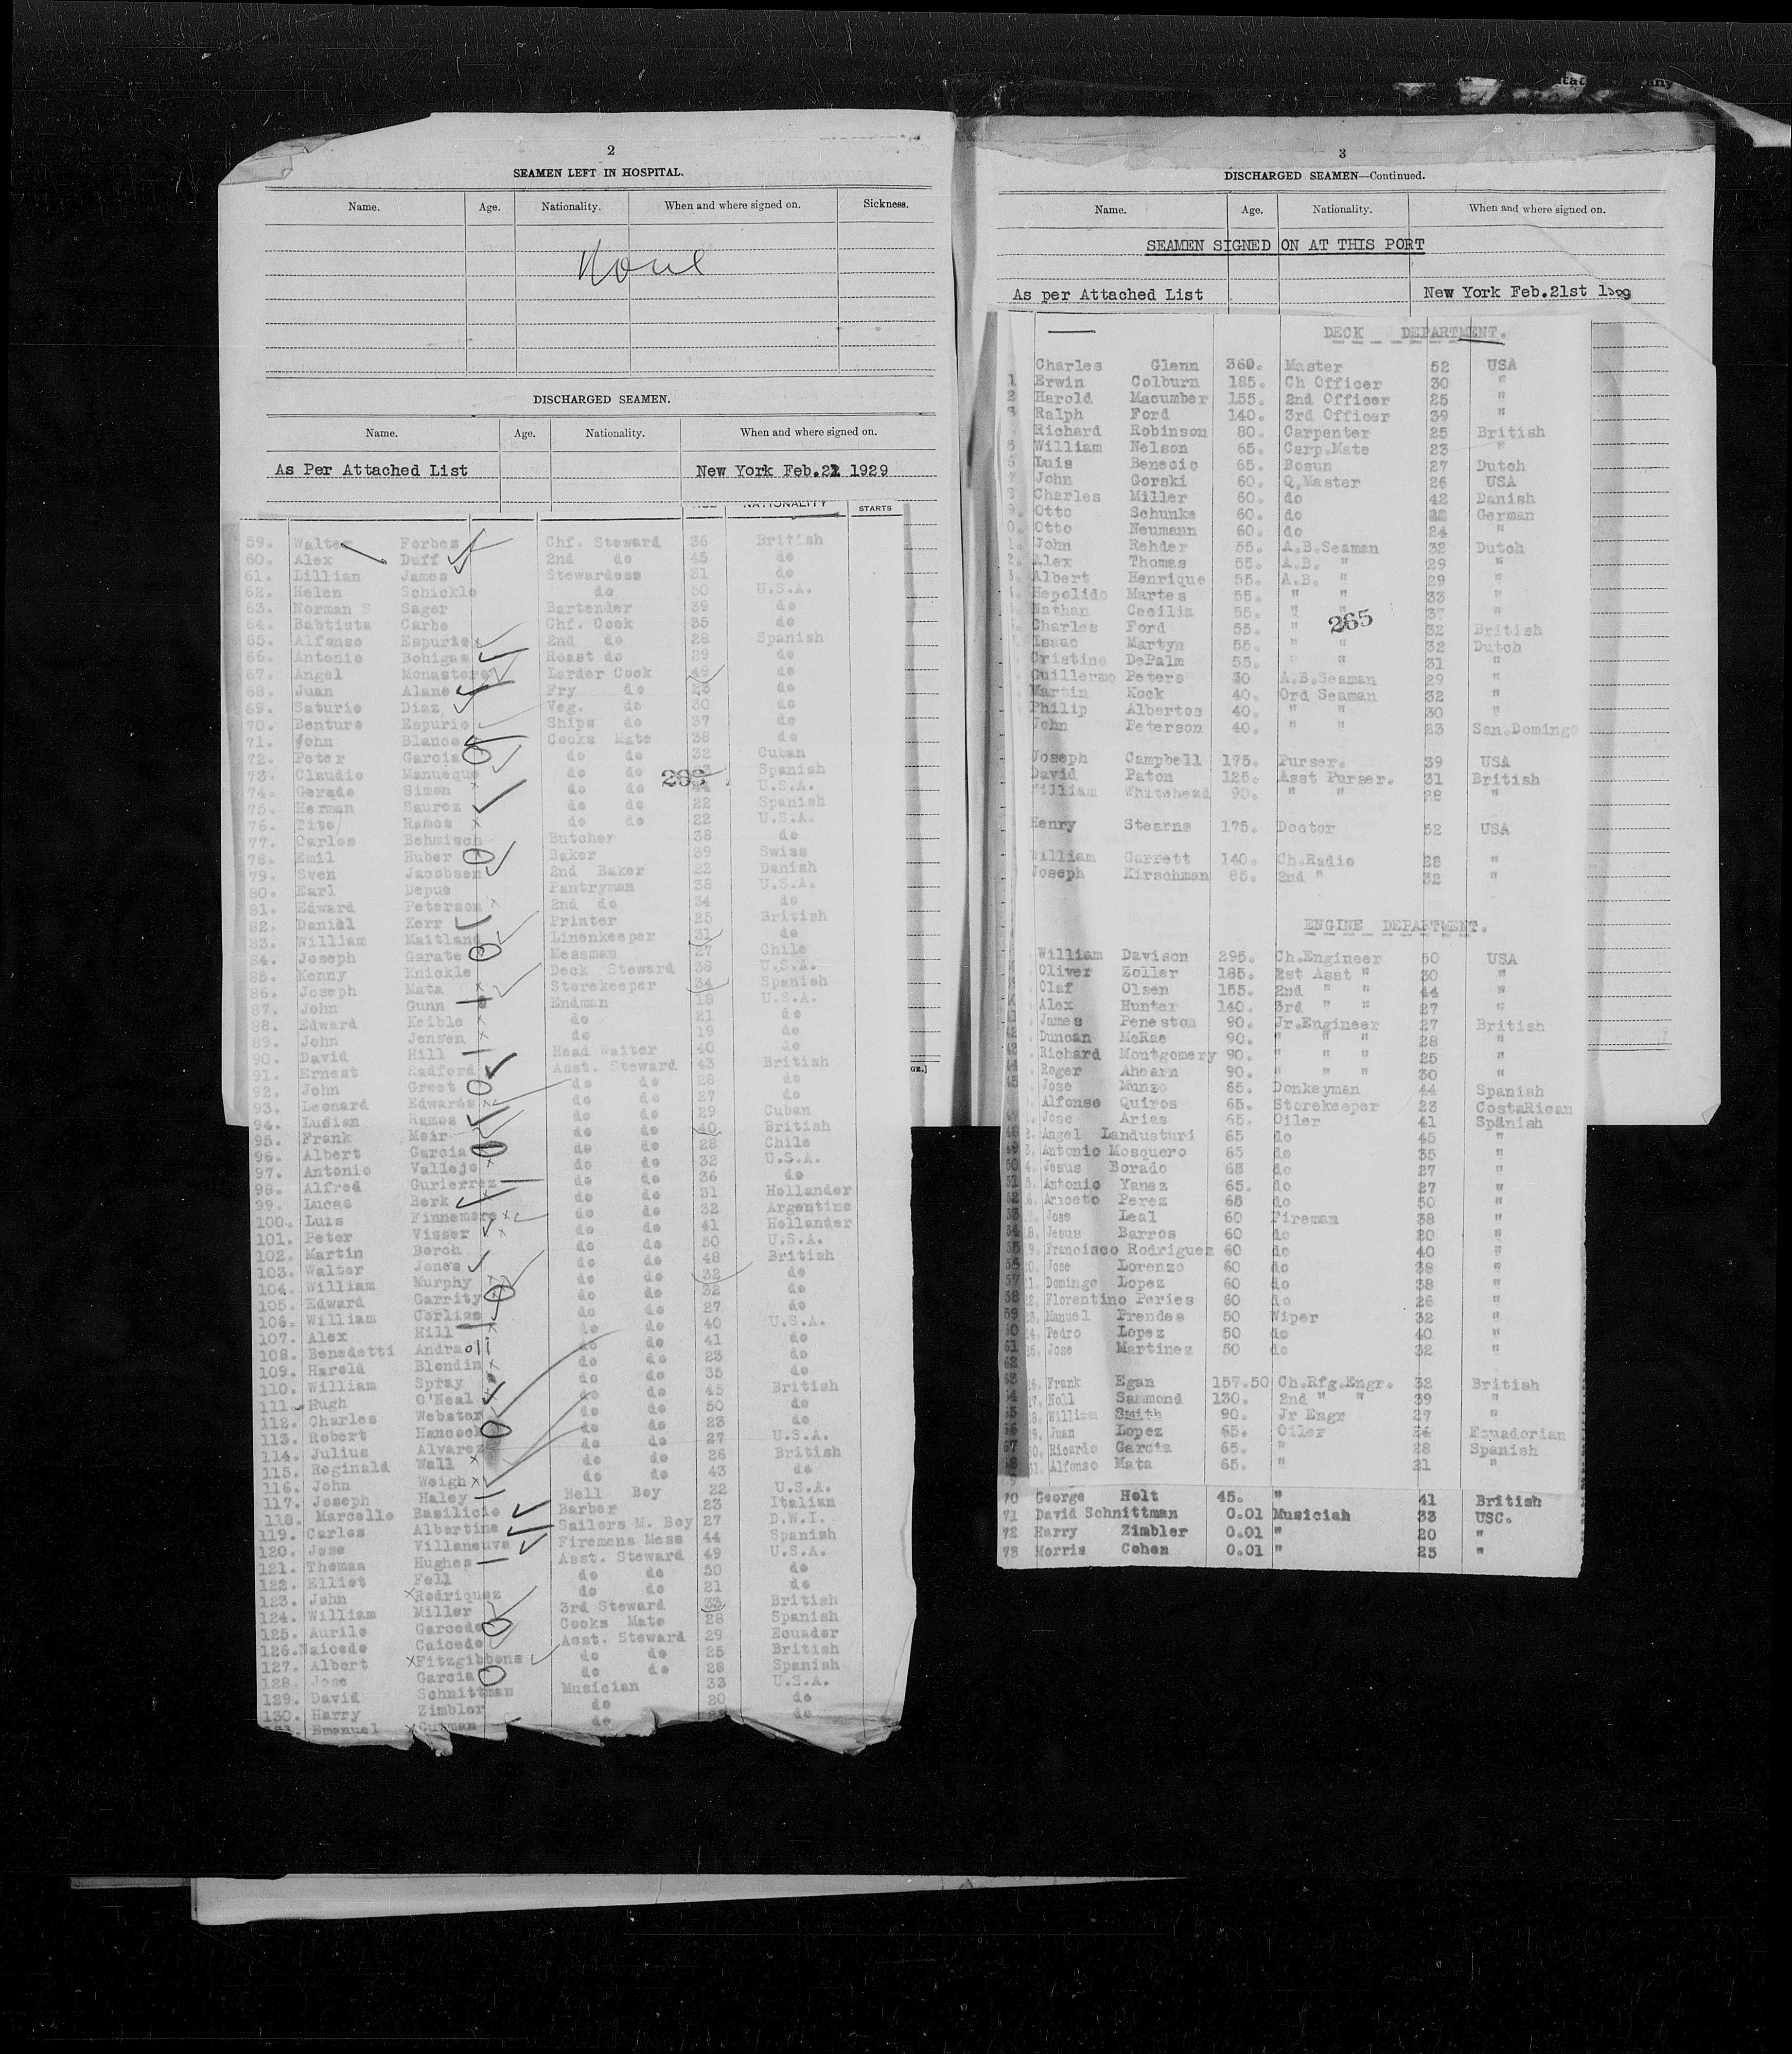 2
SEAMEN LEFT IN HOSPITAL.
Name. Age. Nationality. When and where signed on. Sickness.
None
DISCHARGED SEAMEN.
Name. Age. Nationality. When and where signed on.
As Per Attached List New York Feb.21 1929
NATIONALITY STARTS
59. Walter Forbes Chf. Steward 36 British
60. Alex Duff 2nd do 45 do
61. Lillian James Stewardess 31 do
62. Helen Schickle do 50 U.S.A.
63. Norman S Sager Bartender 39 do
64. Babtista Carbo Chf. Cook 35 do
65. Alfonso Espurie 2nd do 28 Spanish
66. Antonio Bohigas Roast do 29 do
67. Angel Monastere Larder Cook 49 do
68. Juan Alane Fry do 23 do
69. Saturio Diaz Veg. do 30 do
70. Benture Espurie Ships do 37 do
71. John Blanco Cooks Mate 38 do
72. Peter Garcia do do 32 Cuban
73. Claudio Manueque do do Spanish
74. Gerado Simon do do U.S.A.
75. Herman Saurez do do 22 Spanish
76. Tito Ramos do do 22 U.S.A.
77. Carlos Behmisch Butcher 38 do
78. Emil Huber Baker 39 Swiss
79. Sven Jacobsen 2nd Baker 22 Danish
80. Earl Depue Pantryman 38 U.S.A.
81. Edward Peterson 2nd do 34 do
82. Daniel Kerr Printer 25 British
83. William Maitland Linenkeeper 31 do
84. Joseph Garate Messman 27 Chile
85. Kenny Knickle Deck Steward 38 U.S.A.
86. Joseph Mata Storekeeper 34 Spanish
87. John Gunn Endman 18 U.S.A.
88. Edward Keible do 21 do
89. John Jensen do 19 do
90. David Hill Head Waiter 40 do
91. Ernest Radford Asst. Steward 43 British
92. John Greet do do 28 do
93. Leonard Edwards do do 27 do
94. Lusian Ramos do do 29 Cuban
95. Frank Moir do do 40 British
96. Albert Garcia do do 28 Chile
97. Antonio Vallejo do do 32 U.S.A.
98. Alfred Gurierrez do do 36 do
99. Lucas Berk do do 31 Hollander
100. Luis Finnemore do do 32 Argentine
101. Peter Visser do do 41 Hollander
102. Martin Borch do do 50 U.S.A.
103. Walter Jones do do 48 British
104. William Murphy do do 32 do
105. Edward Garrity do do 32 do
106. William Corliss do do 27 do
107. Alex Hill do do 40 U.S.A.
108. Benedetti Andraolli do do 41 do
109. Harold Blondin do do 23 do
110. William Spray do do 35 do
111. Hugh O'Neal do do 45 British
112. Charles Webster do do 50 do
113. Robert Hancock do do 23 do
114. Julius Alvarez do do 27 U.S.A.
115. Reginald Wall do do 26 British
116. John Weigh do do 43 do
117. Joseph Haley Bell Boy 22 U.S.A.
118. Marcello Basilicio Barber 23 Italian
119. Carlos Albertine Sailers M. Boy 27 D.W.I.
120. Jose Villaneuva Firemens Mess 44 Spanish
121. Thomas Hughes Asst. Steward 49 U.S.A.
122. Elliot Fell do do 50 do
123. John Rodriquez do do 21 do
124. William Miller 3rd Steward 33 British
125. Aurilo Garcedo Cooks Mate 28 Spanish
126. Caicedo Asst. Steward 29 Ecuador
127. Albert Fitzgibbons do do 25 British
128. Jose Garcia do do 28 Spanish
129. David Schnittman Musician 33 U.S.A.
130. Harry Zimbler do 20 do
Emanuel do do
3
DISCHARGED SEAMEN—Continued.
Name. Age. Nationality. When and where signed on.
SEAMEN SIGNED ON AT THIS PORT
As per Attached List New York Feb.21st
DECK DEPARTMENT.
Charles Glenn 360. Master 52 USA
1 Erwin Colburn 185. Ch Officer 30 "
2 Harold Macumber 155. 2nd Officer 25 "
3 Ralph Ford 140. 3rd Officer 39 "
Richard Robinson 80. Carpenter 25 British
5 William Nelson 65. Carp.Mate 23 "
Luis Benecio 65. Bosun 27 Dutch
John Gorski 60. Q.Master 26 USA
8 Charles Miller 60. do 42 Danish
9. Otto Schunke 60. do German
0. Otto Neumann 60. do 24 "
John Rehder 55. A.B.Seaman 32 Dutch
Alex Thomas 55. A.B. " 29 "
Albert Henrique 55. A.B. " 29 "
Hepolido Martes 55. " " 33 "
Nathan Cecilia 55. " " 37 "
265
Charles Ford 55. " 32 British
Isaac Martyn 55. " " 32 Dutch
Cristine DePalm 55. " " 31 "
Guillermo Peters A.B.Seaman 29 "
Martin Kock 40. Ord Seaman 32 "
Philip Albertos 40. " " 30 "
John Peterson 40. " " 23 San.Domingo
Joseph Campbell 175. Purser. 39 USA
David Paton 125. Asst Purser. 31 British
William Whitehead 90. " " 28 "
Henry Stearns 175. Doctor 52 USA
William Garrett 140. Ch.Radio 28 "
Joseph Kirschman 85. 2nd " 32 "
ENGINE DEPARTMENT.
William Davison 295. Ch.Engineer 50 USA
Oliver Zoller 185. 2st Asst " 30 "
Olaf Olsen 155. 2nd " " 44 "
Alex Hunter 140. 3rd " " 27 "
James Peneston 90. Jr.Engineer 27 British
Duncan McRae 90. " " " 28 "
Richard Montgomery 90. " " " 25 "
Roger Ahearn 90. " " " 30 "
45 Jose Munzo 65. Donkeyman 44 Spanish
Alfonso Quiros 65. Storekeeper 23 CostaRican
47 Jose Arias 65. Oiler 41 Spanish
48 2. Angel Landusturi 65 do 45 "
49 3. Antonio Mosquero 65 do 35 "
50 4. Jesus Borado 65 do 27 "
51 5. Antonio Yanez 65. do 27 "
52 6. Aniceto Perez 65 do 50 "
53 Jose Leal 60 Fireman 38 "
54 18. Jesus Barros 60 do 20 "
55 19. Francisco Rodriguez 60 do 40 "
56 20. Jose Lorenzo 60 do 38 "
57 21. Domingo Lopez 60 do 38 "
58 22. Florentino Peries 60 do 26 "
59 23. Manuel Prendes 50 Wiper 32 "
60 24. Pedro Lopez 50 do 40 "
61 25. Jose Martinez 50 do 32 "
62
63 26. Frank Egan 157.50 Ch.Rfg.Engr. 32 British
64 27. Noll Sammond 130. 2nd " " 39 "
65 28. William Smith 90. Jr Engr 27 "
66 29. Juan Lopez 65. Oiler 26 Ecuadorian
67 30. Ricardo Garcia 65. " 28 Spanish
68 31. Alfonso Mata 65. " 21 "
70 George Holt 45. " 41 British
71 David Schnittman 0.01 Musician 33 USC.
72 Harry Zimbler 0.01 " 20 "
73 Morris Cohen 0.01 " 25 "